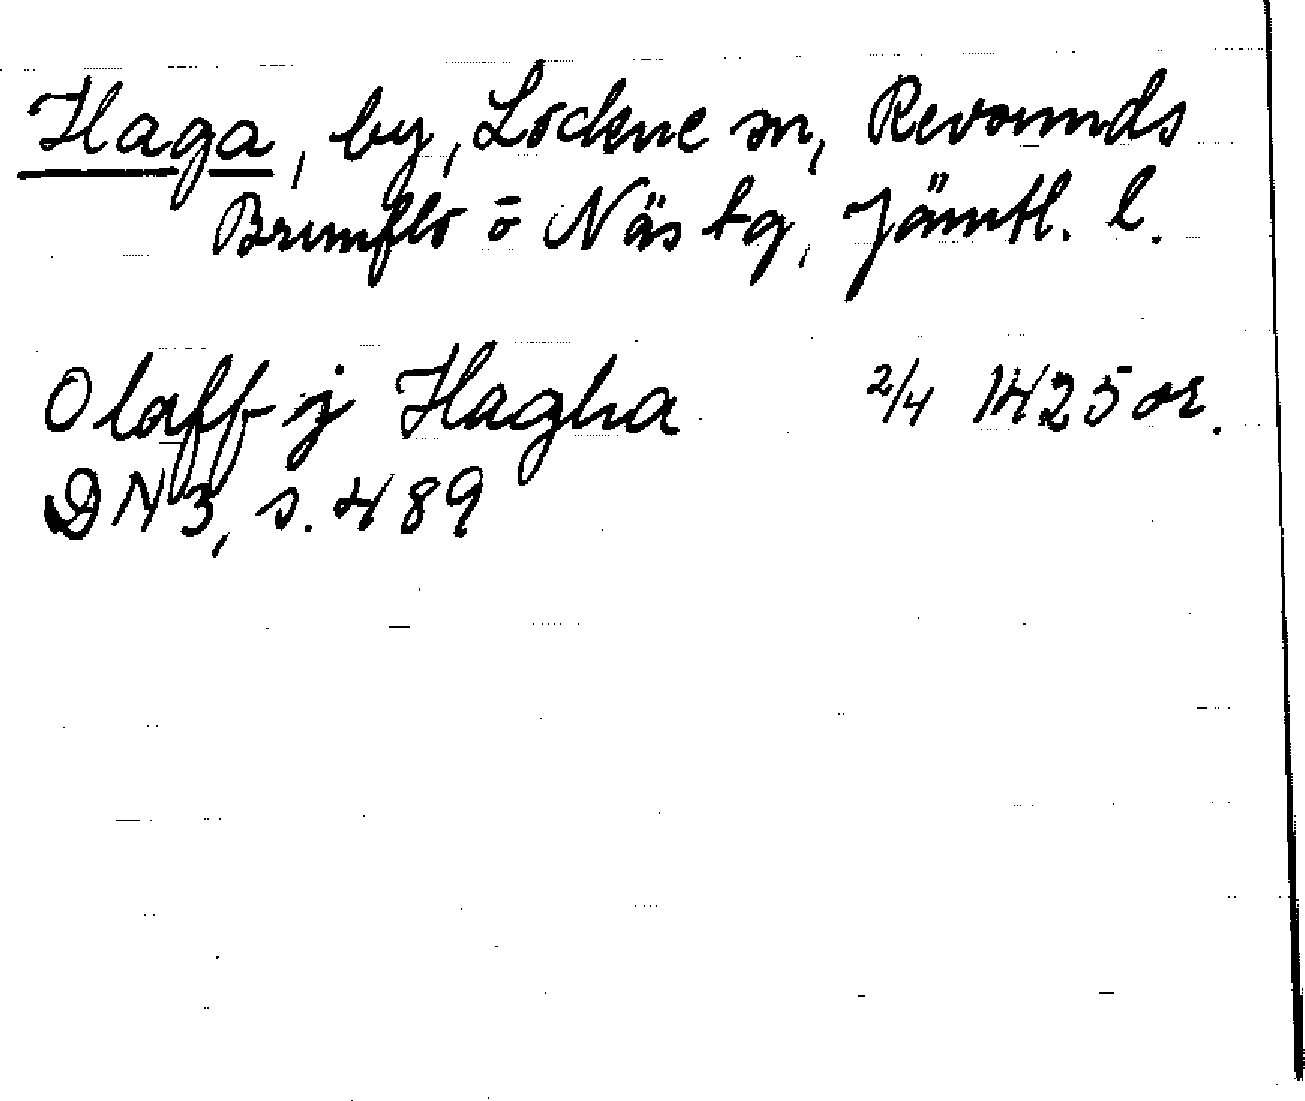 Haga, by, Lockne sn, Revsunds
Brunflo o Näs tg, Jämtl. l.
Olaff j Hagha 2/4 1425 or.
DN 3, s. 489